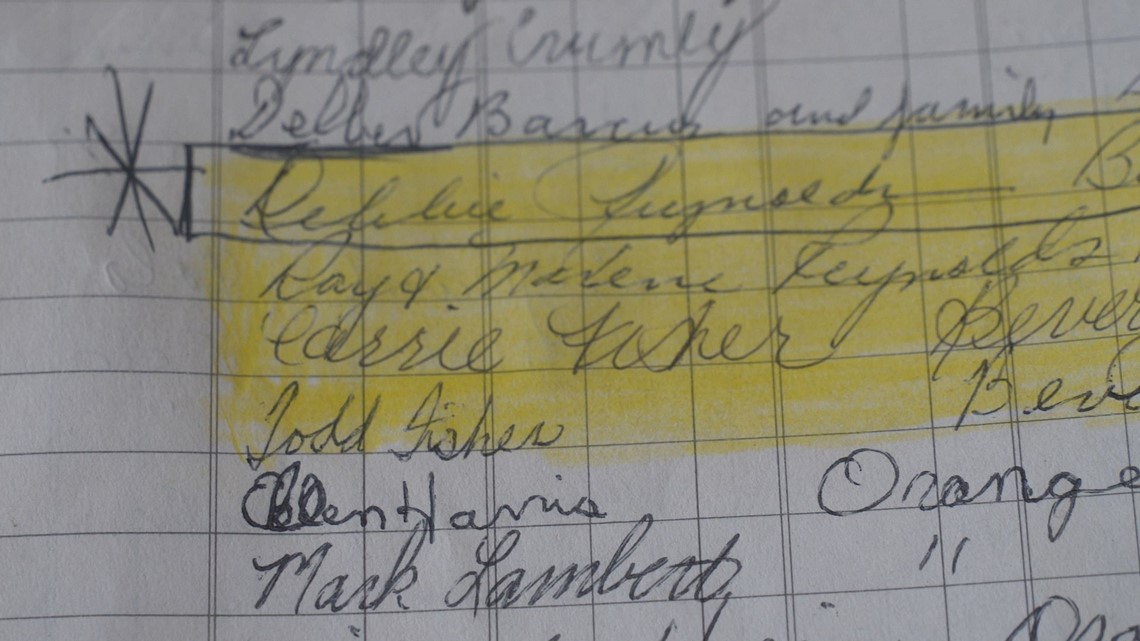 Lyndley Crumly
Barcus and family
Reynolds
Ray & Marlene Reynolds
Carrie Fisher Bever
Todd Fisher Beve
Glen Harris Orange
Mark Lambert "